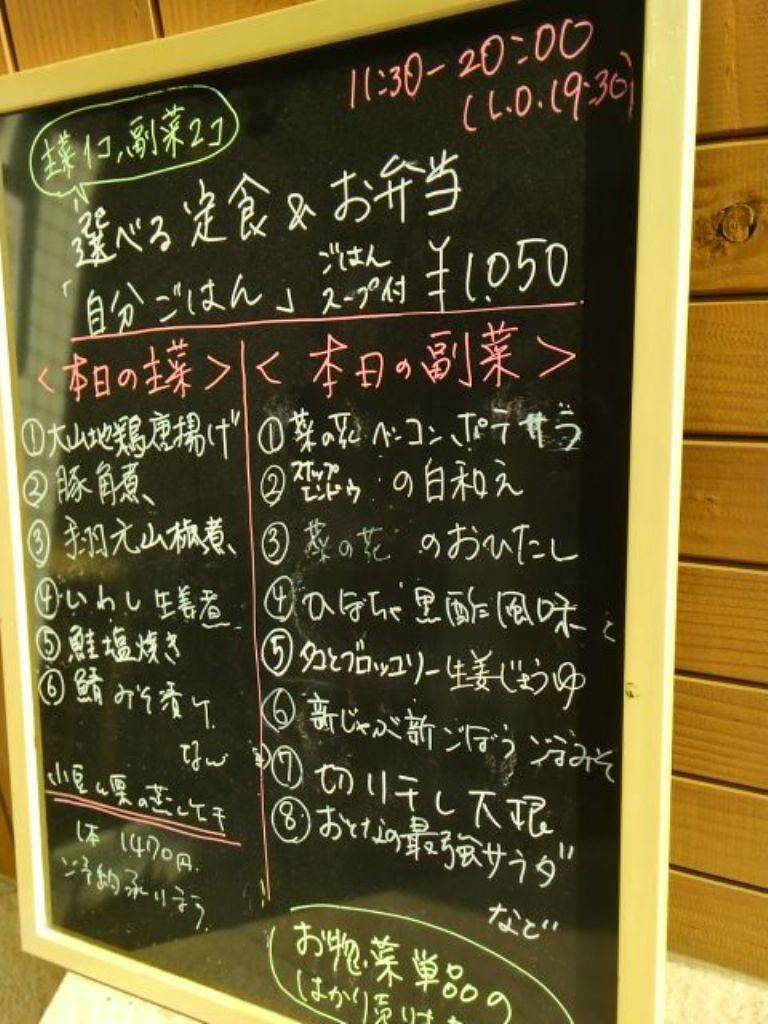 11:30-20:00
(L.O.19:30)
主菜1コ、副菜2コ
選べる定食&お弁当
「自分ごはん」ごはんスープ付 ¥1,050
<本日の主菜>
①大山地鶏唐揚げ
②豚角煮
③手羽元山椒煮
④いわし生姜煮
⑤鮭塩焼き
⑥鯖みそ漬け
など
小豆と栗の蒸しケーキ
1本 1470円
ご予約承ります
<本日の副菜>
①菜の花ベーコンポテサラ
②スナップエンドウの白和え
③菜の花のおひたし
④かぼちゃ黒酢風味
⑤タコとブロッコリー生姜じょうゆ
⑥新じゃが新ごぼうごまみそ
⑦切り干し大根
⑧おとなの最強サラダ
など
お惣菜単品の
はかり売り